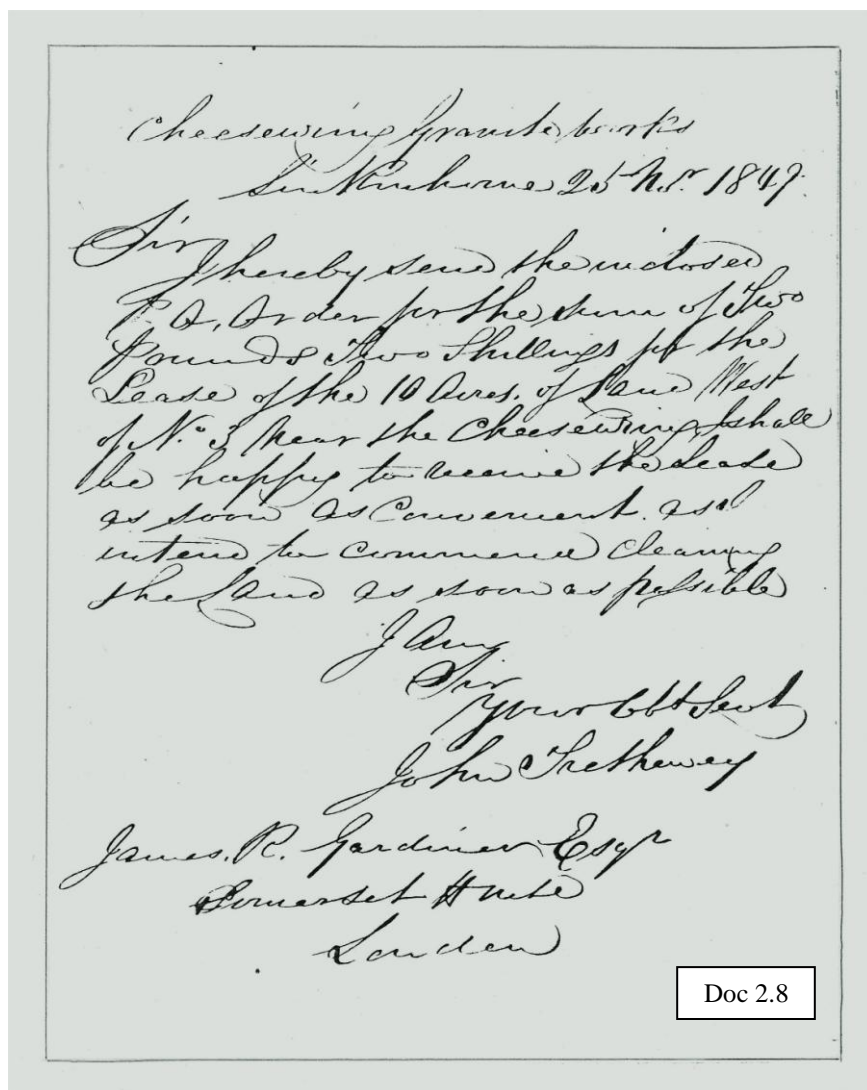 Cheesewring Granite Works
Linkinhorne 25 Nor. 1847.
Sir
I hereby send the inclosed
P. O. Order for the sum of Two
Pounds Two Shillings for the
Lease of the 10 Acres. of Land West
of No. 3 Near the Cheesewring, I shall
be happy to receive the Lease
as soon as Convenient. as I
intend to commence clearing
the Land as soon as possible
I Am
Sir
Your Obt Servt
John Trethewey
James. R. Gardiner Esqr
Somerset
London
Doc 2.8